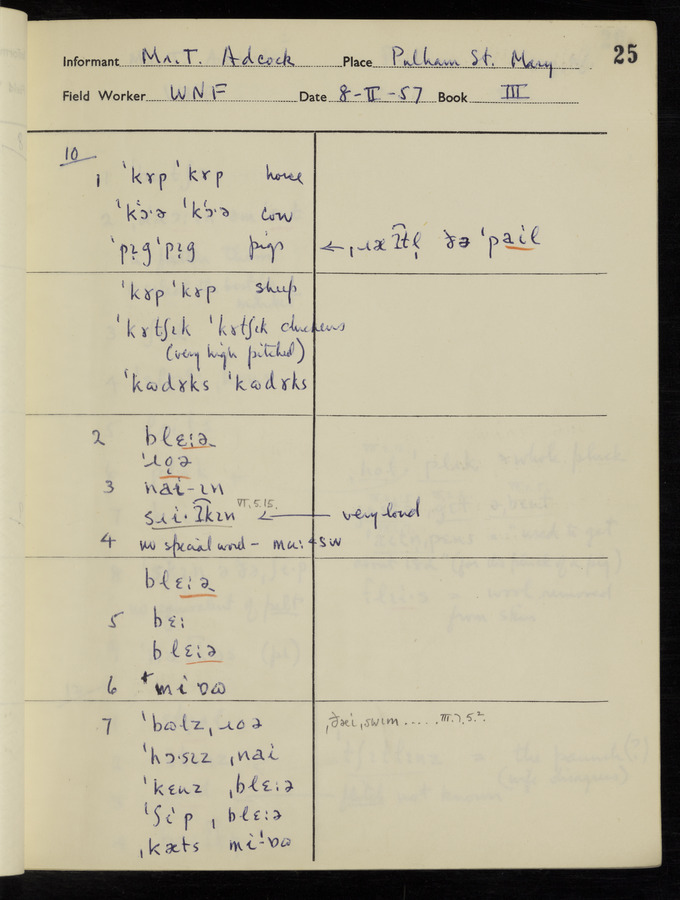 25
Informant Mr. T. Adcock Place Pulham St. Mary
Field Worker WNF Date 8-II-57 Book III
10
1 ˈkɤp ˈkɤp horse
ˈkɔ̈·ə ˈkɔ̈·ə cow
ˈpɪ̣g ˈpɪ̣g pigs ←
ðə ˈpail
ˈkɤp ˈkɤp sheep
ˈkɤtʃɪk ˈkɤtʃɪk chickens
(very high pitched)
ˈkɷdɤks ˈkɷdɤks
2 blɛ:ə
ˈɹo̜ə
3 nai-ɪn
VI.5.15. ← very loud
4 no special word –
blɛ:ə
5 bɛ:
blɛ:ə
6
7 ˈbɷlz, ɹoə ˌðæi ˌswɪm ..... III.7.5.²
ˈhɔ·sɪz ˌnai
ˈkɛuz ˌblɛ:ə
ˈʃi'p ˌblɛ:ə
ˌkæts